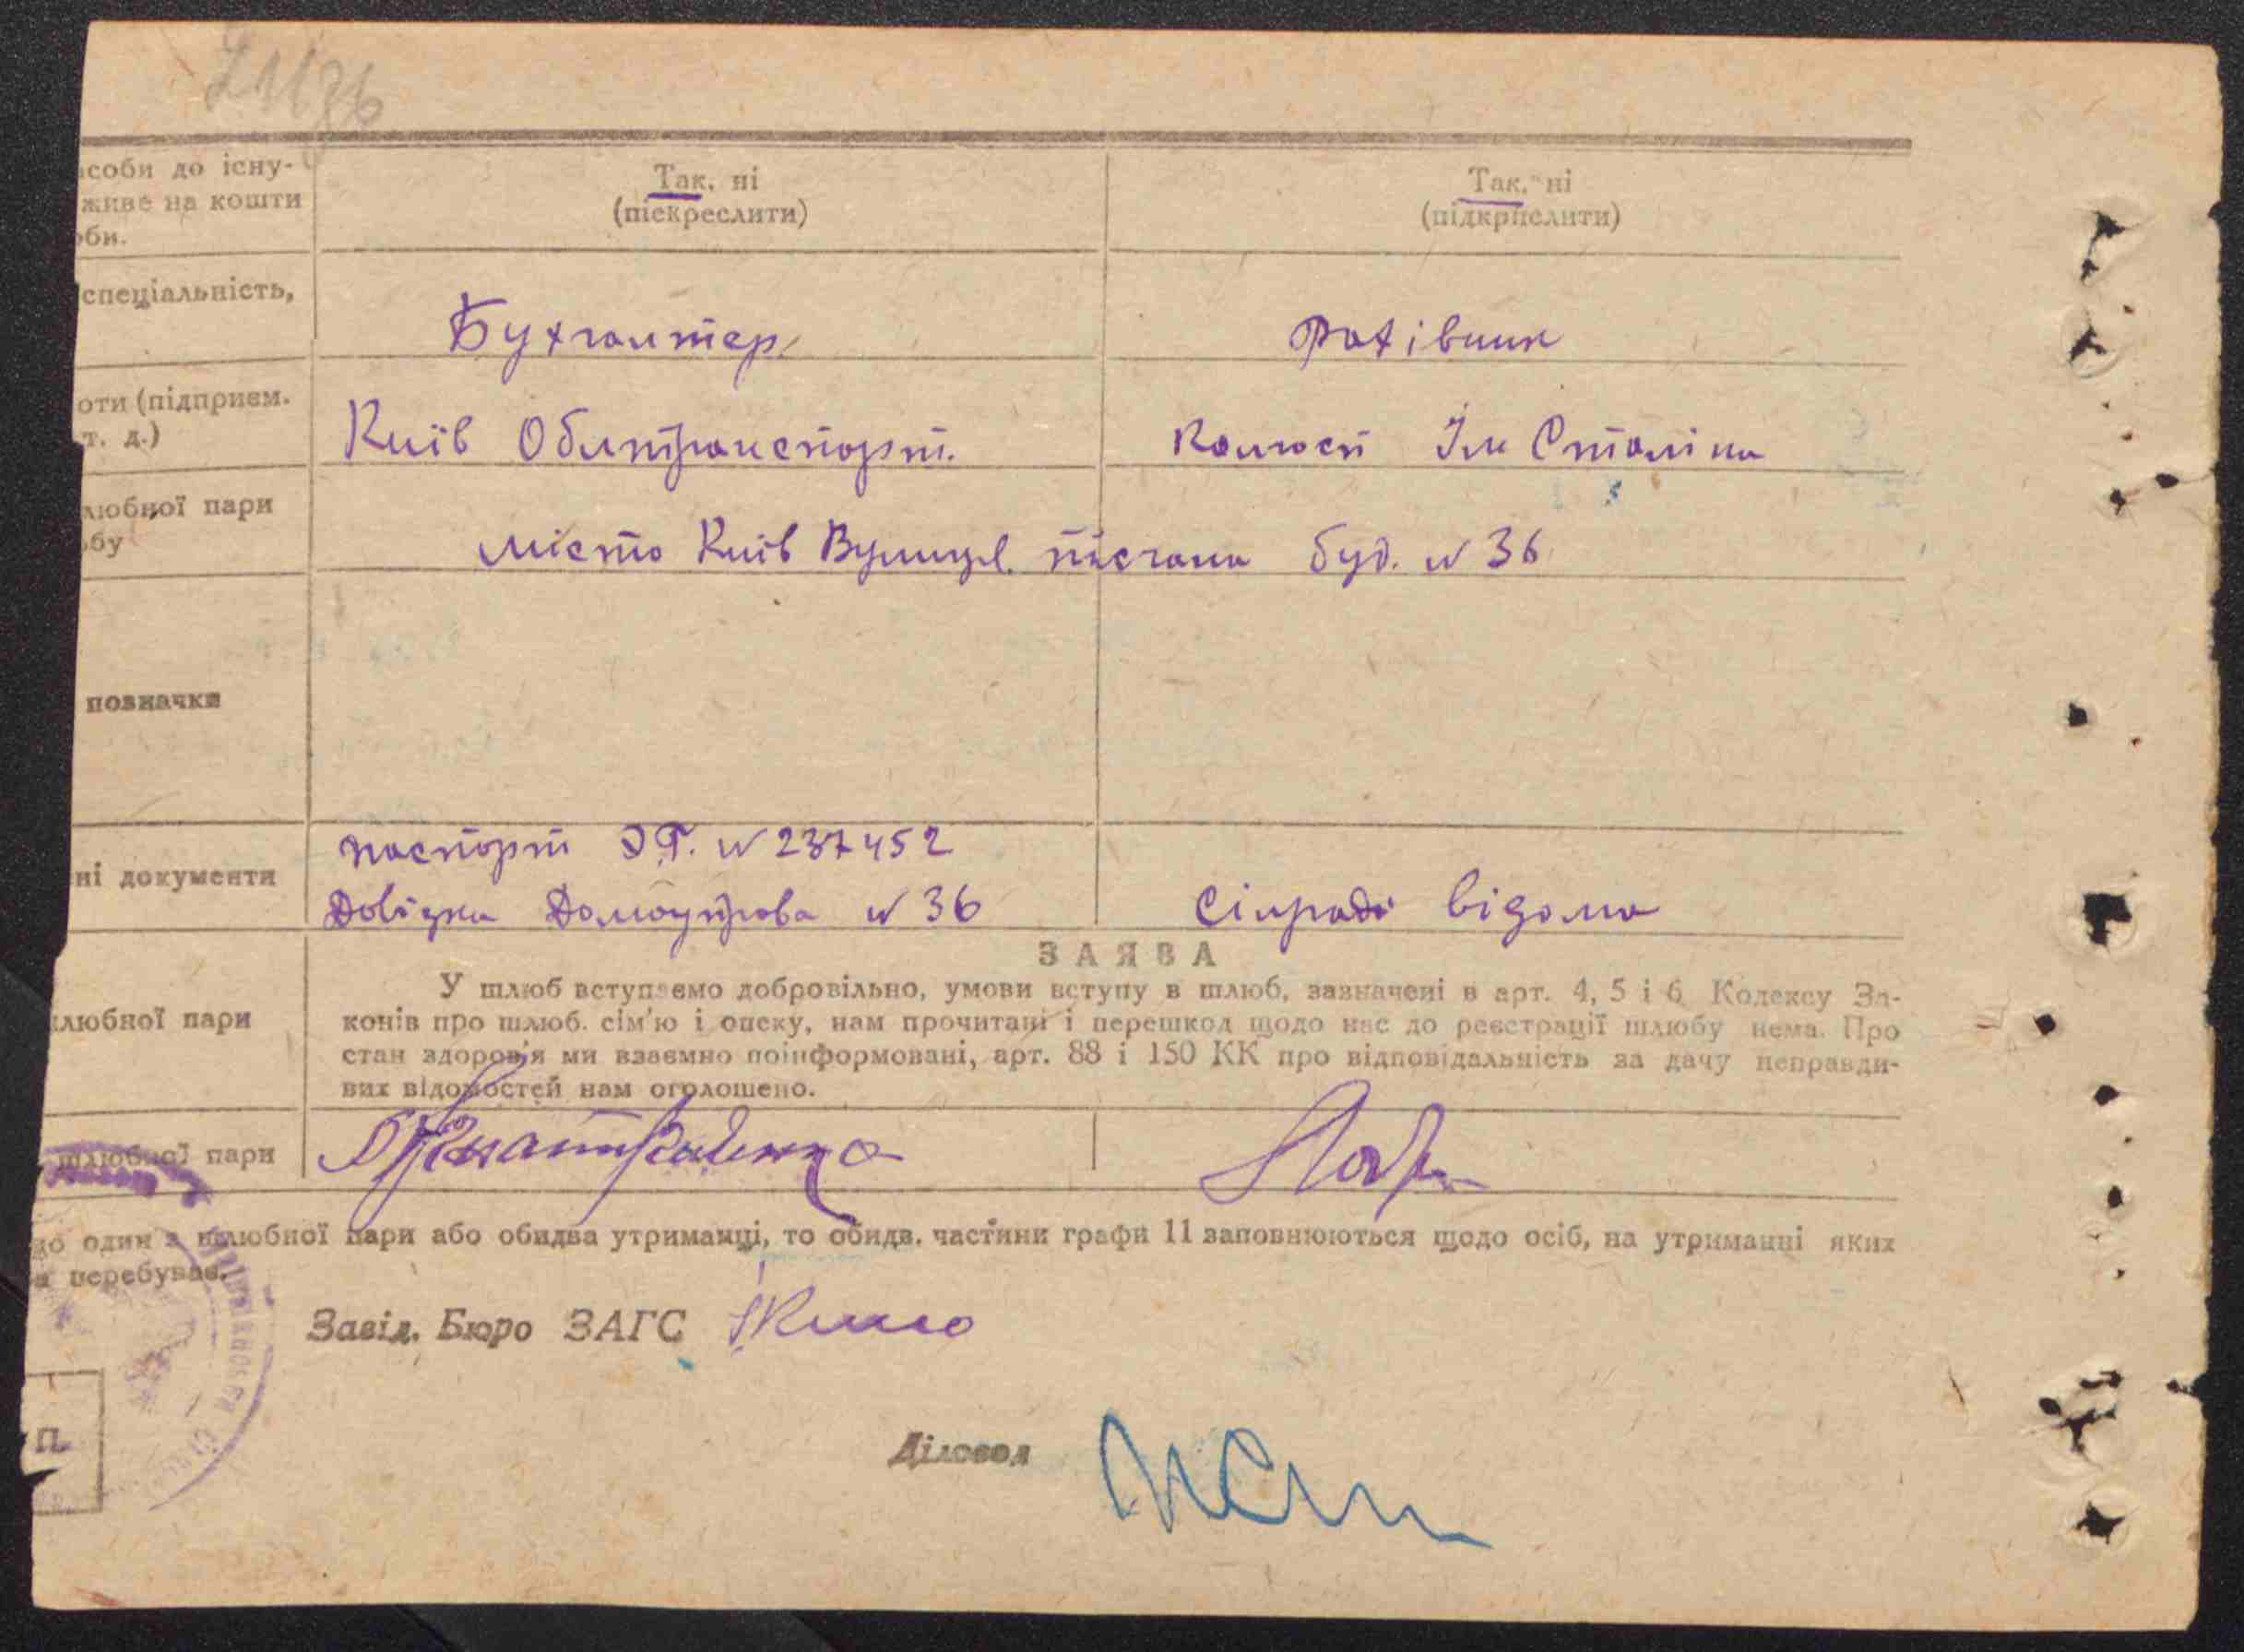 асоби до існу-
живе на кошти
оби.
Так, ні
(піскреслити)
Так, ні
(підкрпслити)
спеціальність,
Бухгалтер
Рахівник
оти (підприєм.
т. д.)
Київ Облтранспорт.
Колгосп Ім Сталіна
любної пари
обу
місто Київ Вулиця. пісчана буд. № 36
позначки
ні документи
паспорт ЭГ. № 237452
Довідка Домоупрова № 36
Сільраді відома
ЗАЯВА
любної пари
У шлюб вступаємо добровільно, умови вступу в шлюб, зазначені в арт. 4, 5 і 6 Кодексу За-
конів про шлюб. сім'ю і опеку, нам прочитані і перешкод щодо нас до реєстрації шлюбу нема. Про
стан здоров'я ми взаємно поінформовані, арт. 88 і 150 КК про відповідальність за дачу неправди-
вих відомостей нам оголошено.
шлюбної пари
що один з шлюбної пари або обидва утриманці, то обидв. частини графи 11 заповнюються щодо осіб, на утриманні яких
перебуває.
Завід. Бюро ЗАГС
П.
Діловод